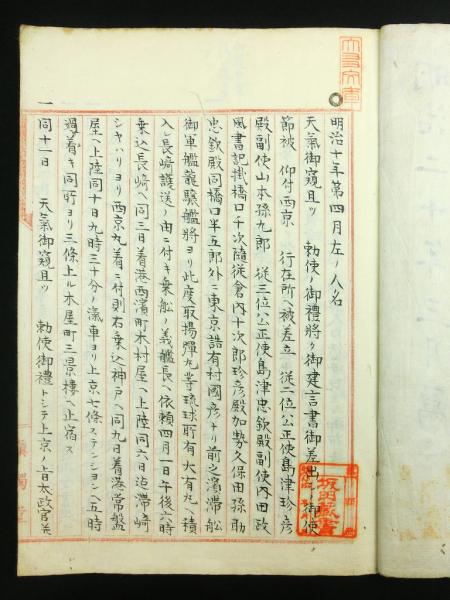 明治十年第四月左ノ人名
天氣御窺且ツ 勅使ノ御禮將タ御建言書御差出 御使
節被 仰付西京 行在所ヘ被差立 従二位公正使島津珍彦
殿副使山本孫九郎 従三位公正使島津忠欽殿副使内田政
風書記掛橋口千次隨従倉内十次郎珍彦殿加勢久保田孫助
忠欽殿同橋口半五郎外ニ東京詰有村國彦ナリ前之濱滞船
御軍艦龍驤艦將ヨリ此度取揚彈丸等琉球形有大有丸ヘ積
入レ長﨑護送ノ由ニ付キ乗船ノ義艦長ヘ依頼四月一日午後六時
乗込長﨑ヘ同三日着港西濱町木村屋ヘ上陸同六日迄滞﨑
シヤハリヨリ西京丸着ニ付則右乗込神戸ヘ同九日着港常盤
屋ヘ上陸同十日九時三十分ノ滊車ヨリ上京七條ステンシヨンヘ五時
過着キ同所ヨリ三條上ル木屋町三景樓ヘ止宿ス
一 同十一日 天氣御窺且ツ 勅使御禮トシテ上京ノ旨太政官江
坂田藏書